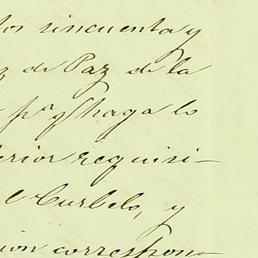 los sincuenta y
z de Paz de la
pª y haga lo
erior requisi-
l Curbelo, y
ion correspon-